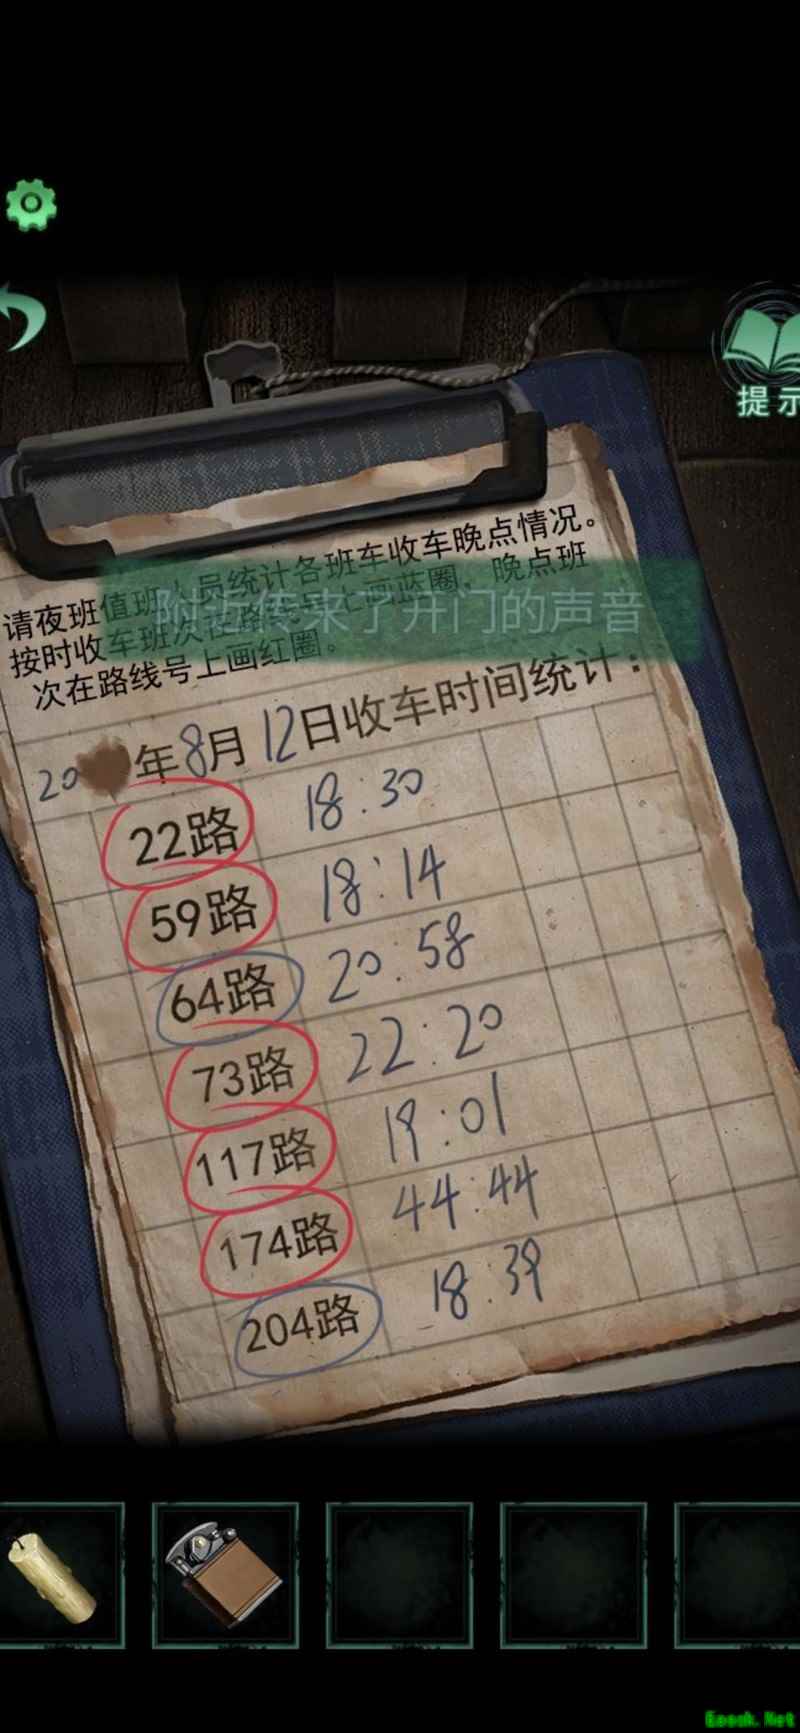 提示
请夜班值班人员统计各班车收车晚点情况。
按时收车班次在路线号上画蓝圈，晚点班
次在路线号上画红圈。
附近传来了开门的声音
20 年8月12日收车时间统计：
22路 18:30
59路 18:14
64路 20:58
73路 22:20
117路 19:01
174路 44:44
204路 18:39
Epook.Net